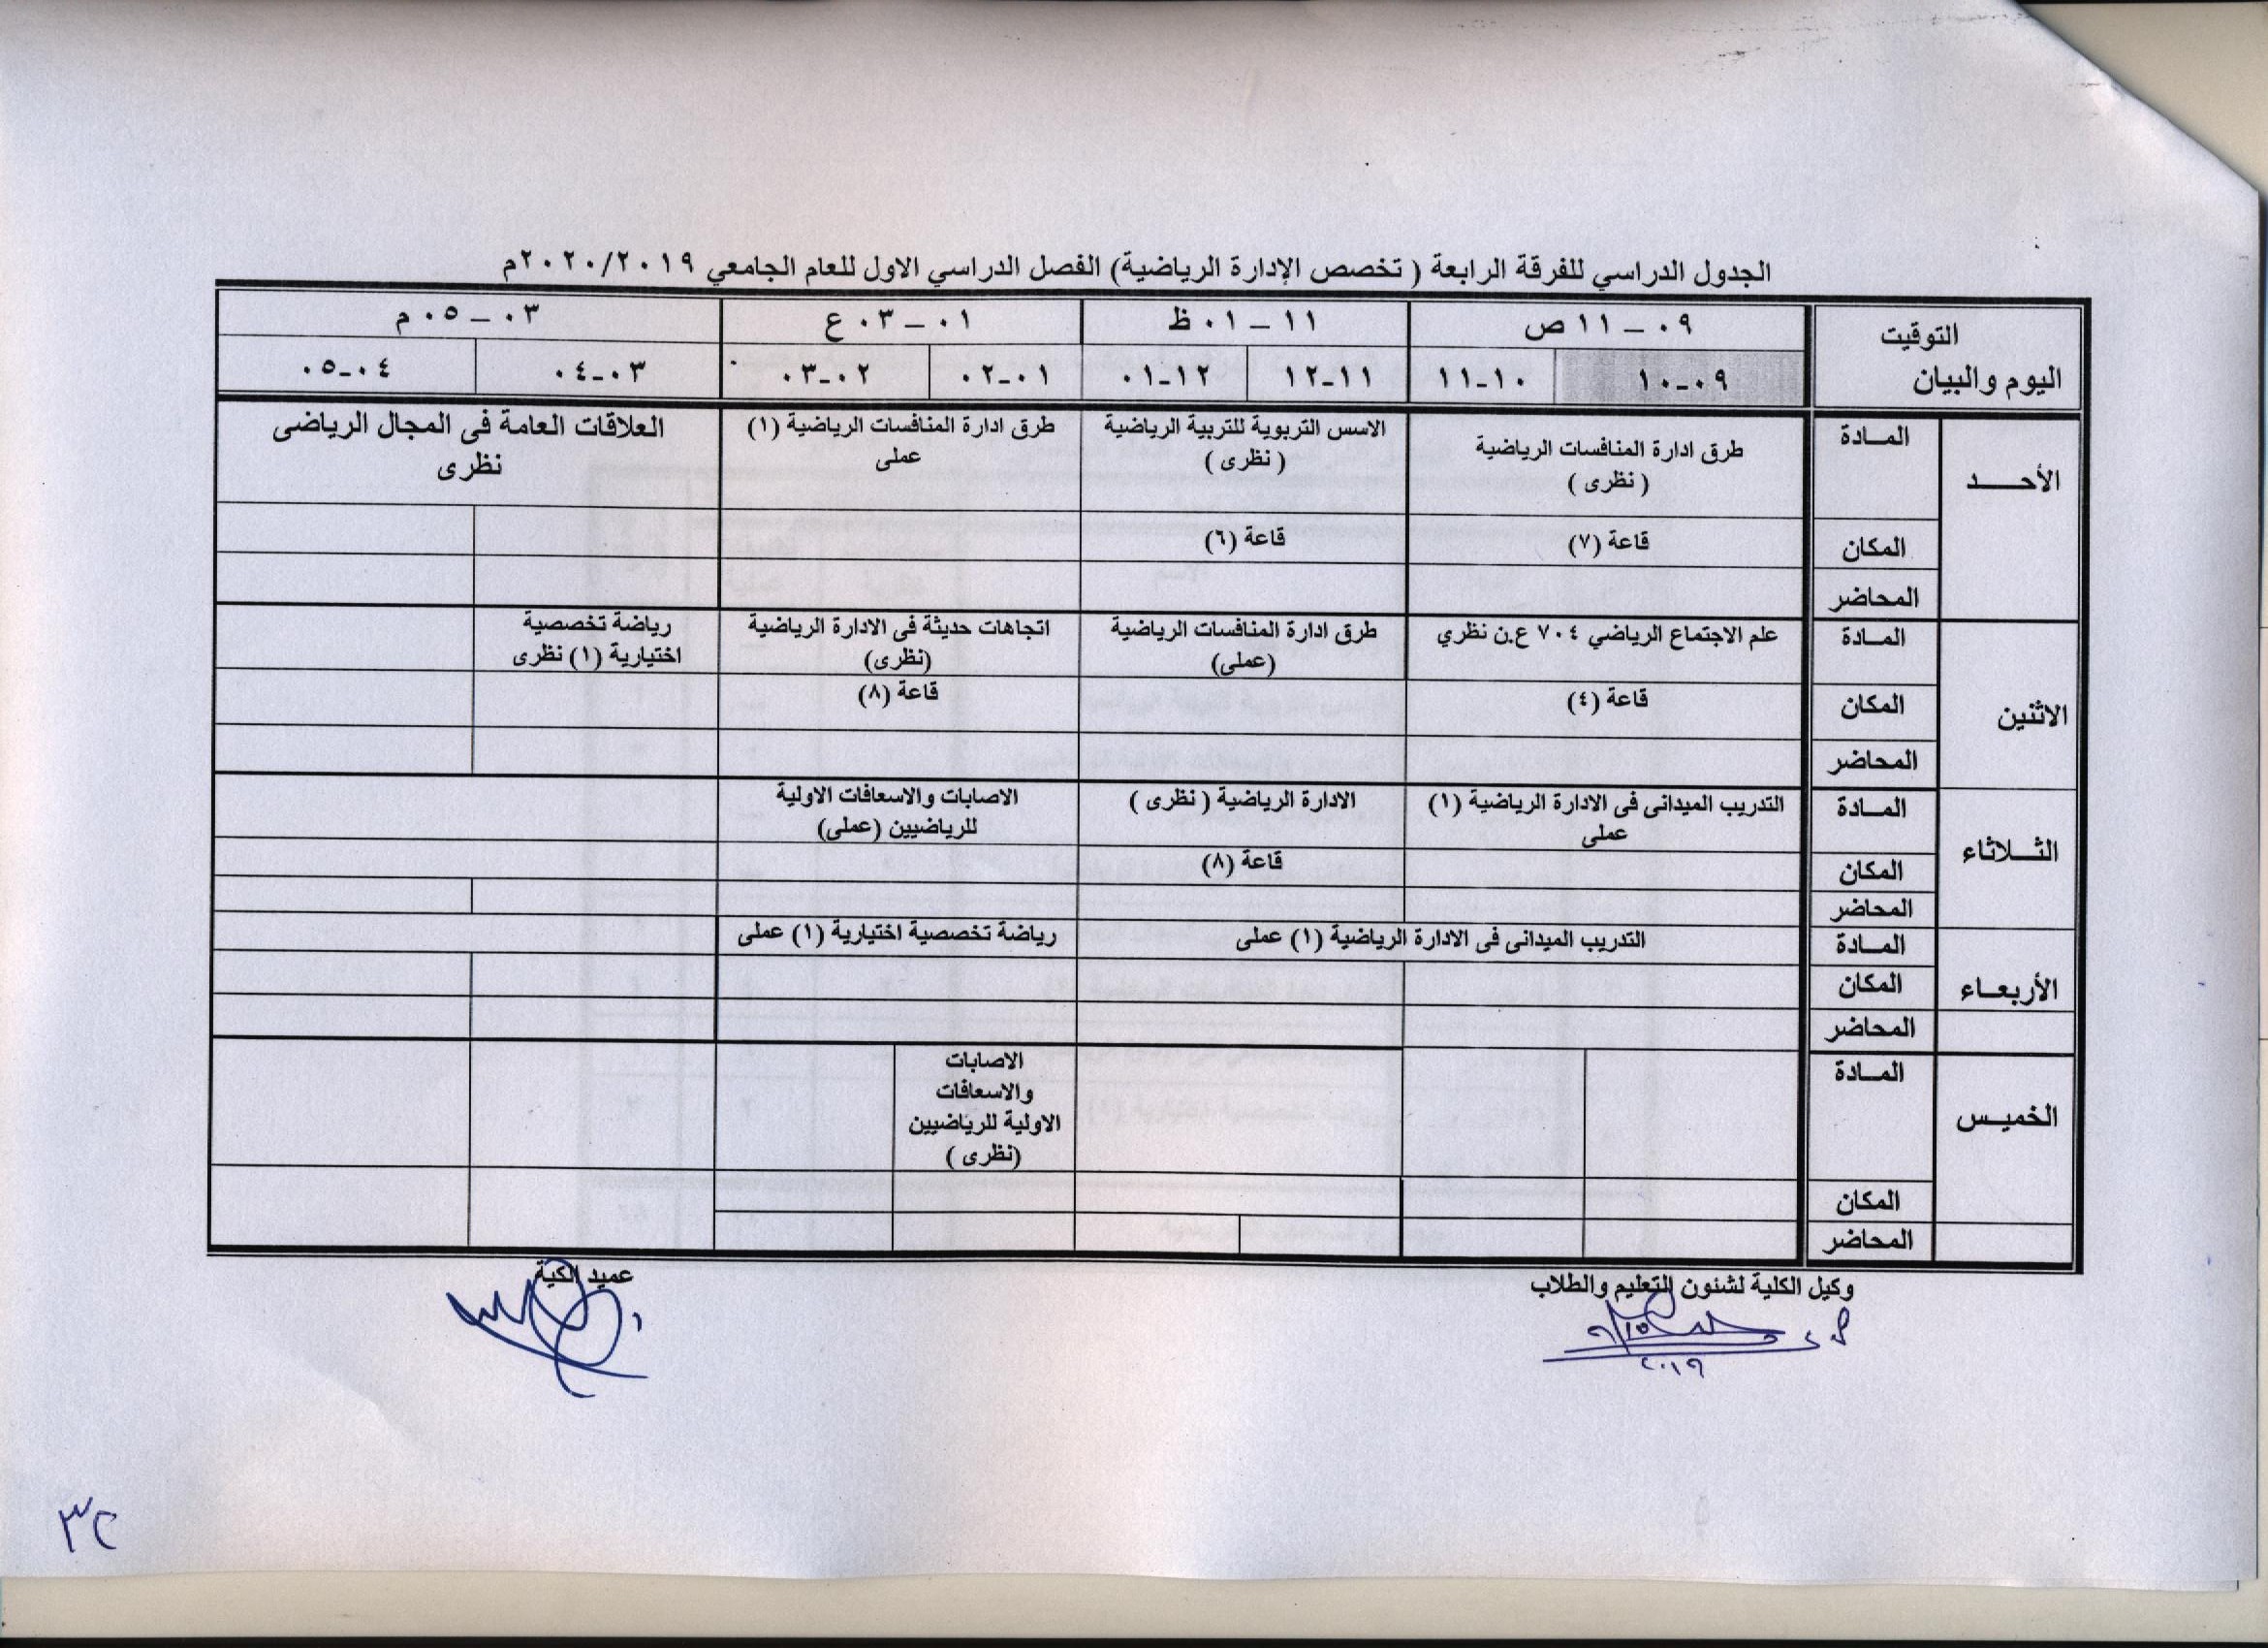 الجدول الدراسي للفرقة الرابعة ( تخصص الإدارة الرياضية) الفصل الدراسي الاول للعام الجامعي ٢٠٢٠/٢٠١٩م
التوقيت
اليوم والبيان
٠٩ – ١١ ص
١١ – ٠١ ظ
٠١ – ٠٣ ع
٠٣ – ٠٥ م
٠٩-١٠
١٠-١١
١١-١٢
١٢-٠١
٠١-٠٢
٠٢-٠٣
٠٣-٠٤
٠٤-٠٥
الأحــــد
المــادة
طرق ادارة المنافسات الرياضية
( نظرى )
الاسس التربوية للتربية الرياضية
( نظرى )
طرق ادارة المنافسات الرياضية (١)
عملى
العلاقات العامة فى المجال الرياضى
نظرى
المكان
قاعة (٧)
قاعة (٦)
المحاضر
الاثنين
المــادة
علم الاجتماع الرياضي ٧٠٤ ع.ن نظري
طرق ادارة المنافسات الرياضية
(عملى)
اتجاهات حديثة فى الادارة الرياضية
(نظرى)
رياضة تخصصية
اختيارية (١) نظرى
المكان
قاعة (٤)
قاعة (٨)
المحاضر
الثــلاثاء
المــادة
التدريب الميدانى فى الادارة الرياضية (١)
عملى
الادارة الرياضية ( نظرى )
الاصابات والاسعافات الاولية
للرياضيين (عملى)
المكان
قاعة (٨)
المحاضر
الأربعــاء
المــادة
التدريب الميدانى فى الادارة الرياضية (١) عملى
رياضة تخصصية اختيارية (١) عملى
المكان
المحاضر
الخميــس
المــادة
الاصابات
والاسعافات
الاولية للرياضيين
(نظرى )
المكان
المحاضر
وكيل الكلية لشئون التعليم والطلاب
عميد الكية
٢٠١٩
٣٢